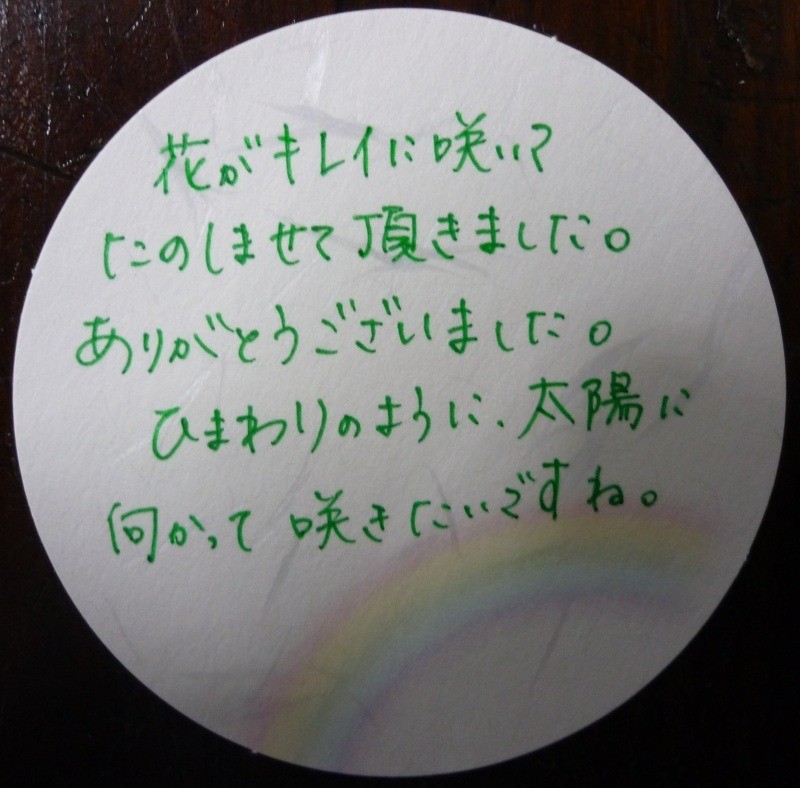 花がキレイに咲いて
たのしませて頂きました。
ありがとうございました。
ひまわりのように、太陽に
向かって咲きたいですね。